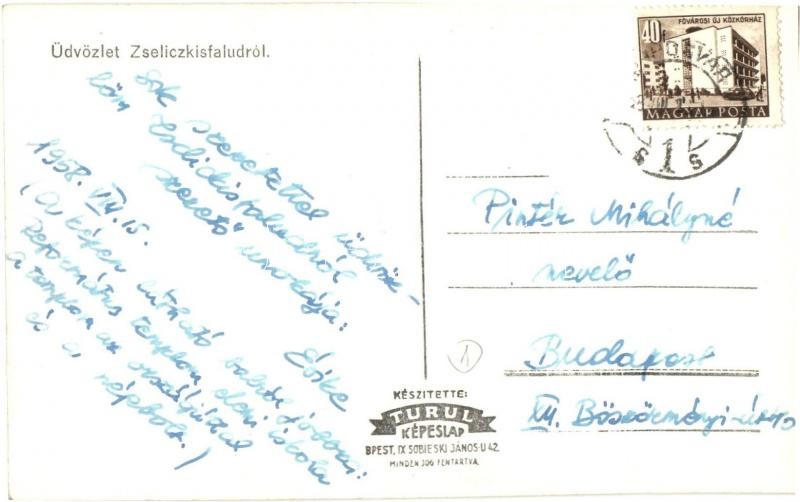 Üdvözlet Zseliczkisfaludról.
Sok szeretettel üdvöz-
löm
szerető unokája:
Lőke
1958. VIII. 15.
(A képen látható balról jobbra:
Református templom, elemi iskola
a templom az országúttal
és a népbolt.)
40f
FŐVÁROSI ÚJ KÖZKÓRHÁZ
MAGYAR POSTA
Pintér Mihályné
nevelő
Budapest
XII. Böszörményi-út
1
KÉSZITETTE:
TURUL
KÉPESLAP
BPEST, IX SOBIESKI JÁNOS-U 42.
MINDEN JOG FENTARTVA.